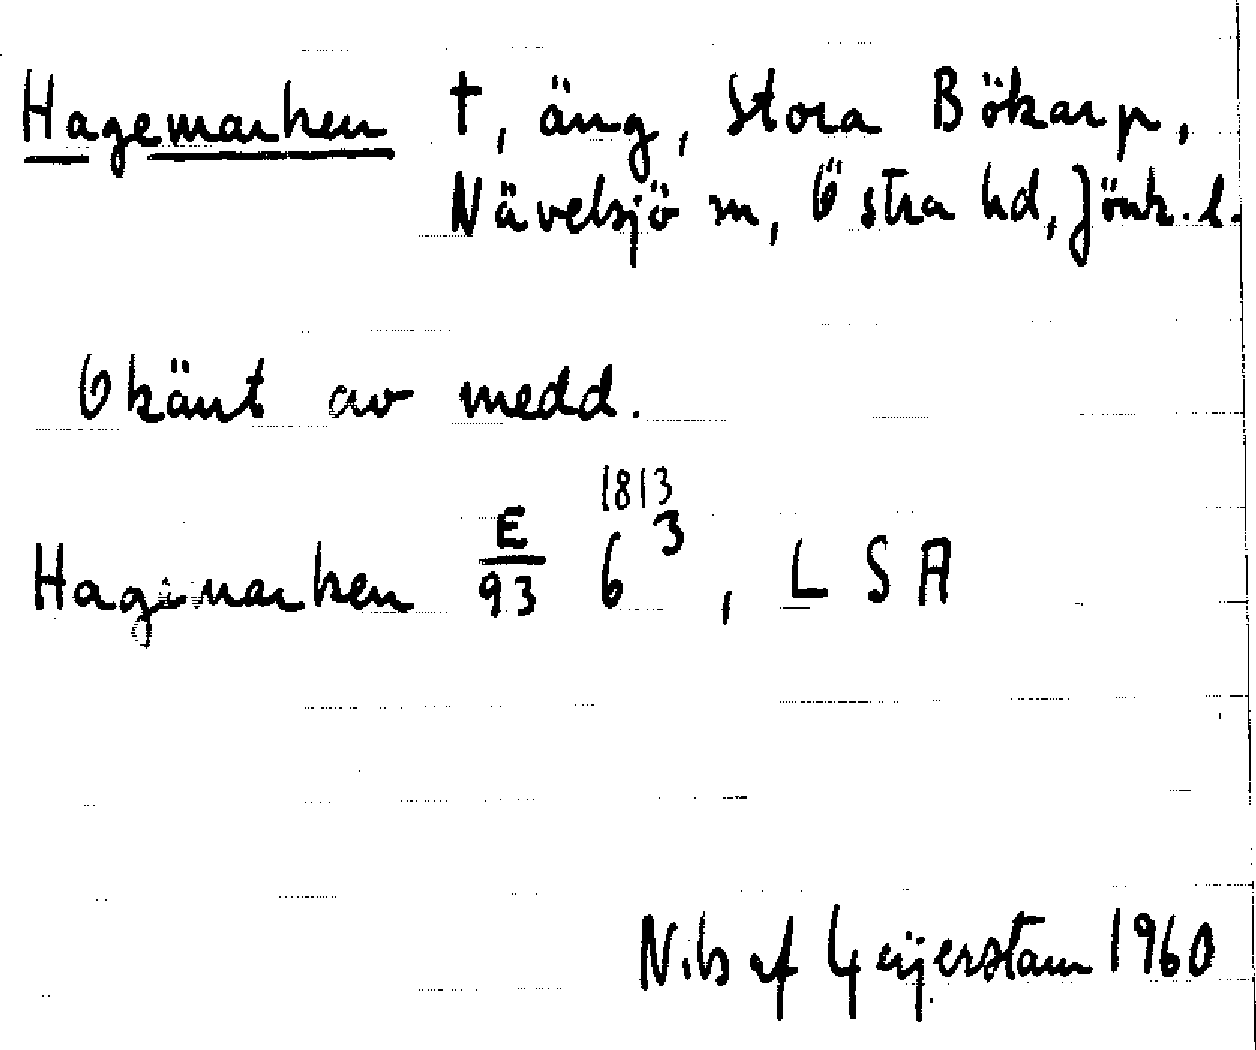 Hagemarken †, äng, Stora Bökarp,
Nävelsjö sn, Östra hd, Jönk. l.
Okänt av medd.
Hagemarken E/93 6 3 1813, LSA
Nils af Geijerstam 1960